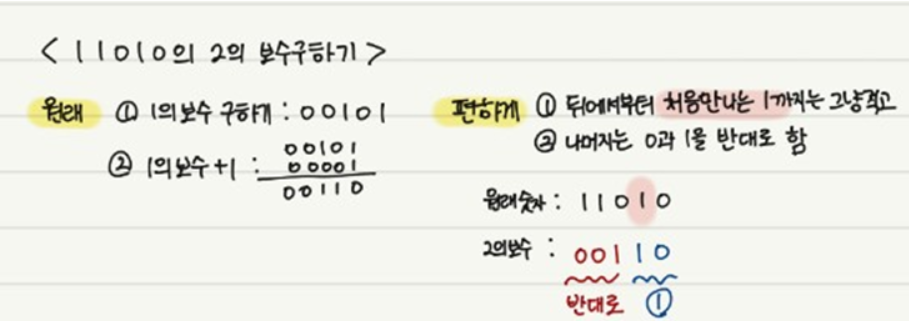 < 11010의 2의 보수구하기 >
원래 ① 1의보수 구하기 : 00101
② 1의보수+1 : 00101
00001
00110
편하게 ① 뒤에서부터 처음만나는 1까지는 그냥적고
② 나머지는 0과 1을 반대로 함
원래숫자 : 11010
2의보수 : 00110
반대로 ①